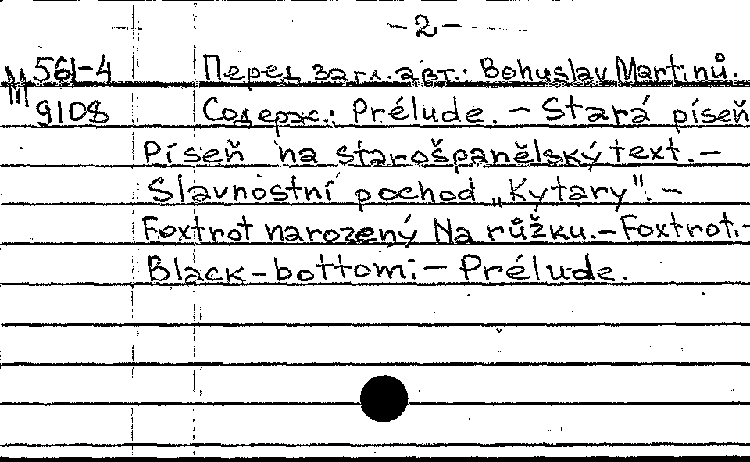 -2-
Ш 561-4 Перед загл. авт.: Bohuslav Martinů.
9108 Содерж.: Prélude. – Stará píseň
Píseň na starošpanělský text. –
Slavnostní pochod „Kytary". –
Foxtrot narozený Na růžku. – Foxtrot. –
Black-bottom: – Prélude.